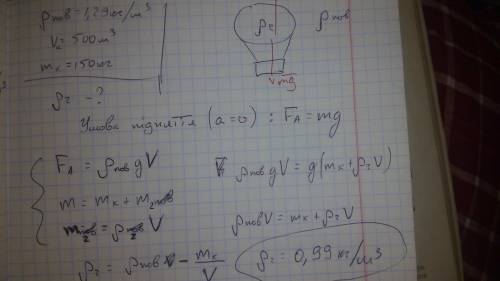 ρпов = 1,29 кг/м³
V = 500 м³
mк = 150 кг
ρг - ?
ρг
ρпов
mg
Умова підняття (a=0) : FA = mg
FA = ρпов gV
ρпов gV = g(mк + ρг V)
m = mк + mг
mг = ρг V
ρпов V = mк + ρг V
ρг = ρпов - mк/V
ρг = 0,99 кг/м³